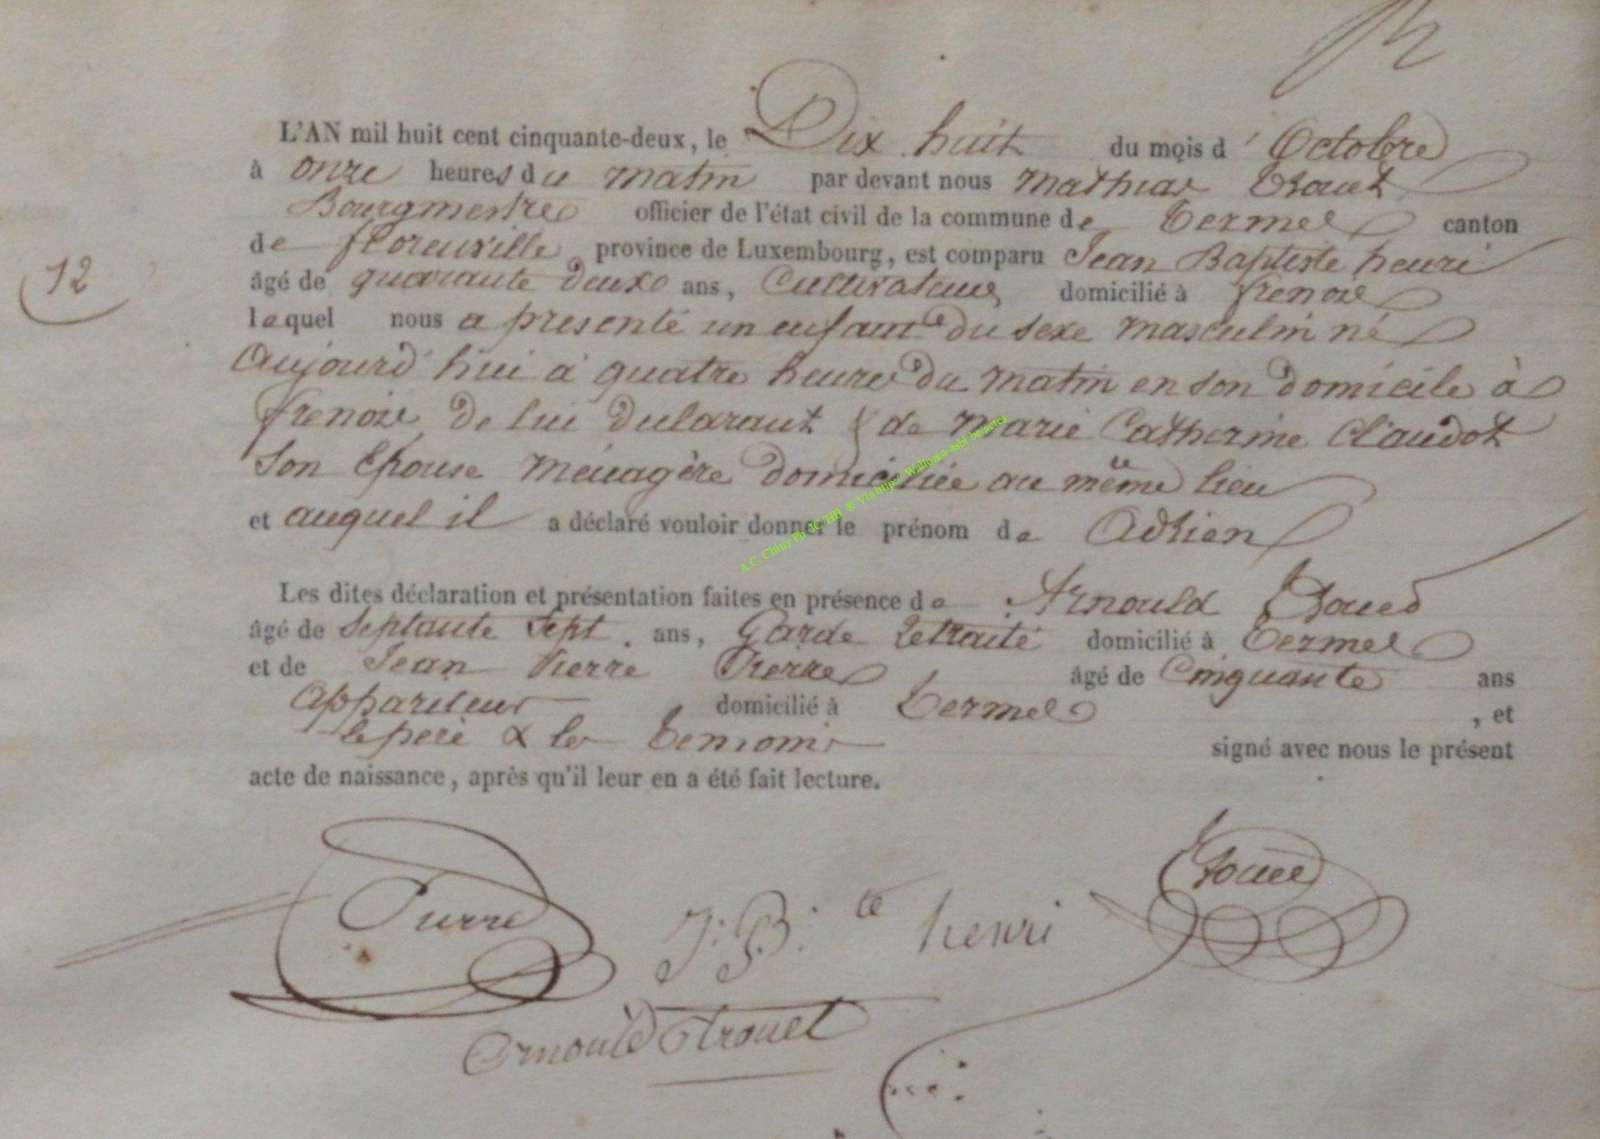 L'AN mil huit cent cinquante-deux, le Dix huit du mois d' Octobre
à onze heures du matin par devant nous Mathias Trouet
Bourgmestre officier de l'état civil de la commune de termes canton
de florenville province de Luxembourg, est comparu Jean Baptiste henri
12
âgé de quarante deux ans, Cultivateur, domicilié à frenois
lequel nous a présenté un enfant du sexe masculin né
aujourd'hui à quatre heures du matin en son domicile à
frenois de lui déclarant & de Marie Catherine Claudot
son Epouse Ménagère domiciliée au même lieu
et auquel il a déclaré vouloir donner le prénom de Adrien
Les dites déclaration et présentation faites en présence de Arnould Trouet
âgé de Septante Sept ans, Garde retraité domicilié à termes
et de Jean Pierre Pierre âgé de Cinquante ans
appariteur domicilié à termes , et
le père & les temoins signé avec nous le présent
acte de naissance, après qu'il leur en a été fait lecture.
Pierre J: B: te henri Trouet
Arnould trouet